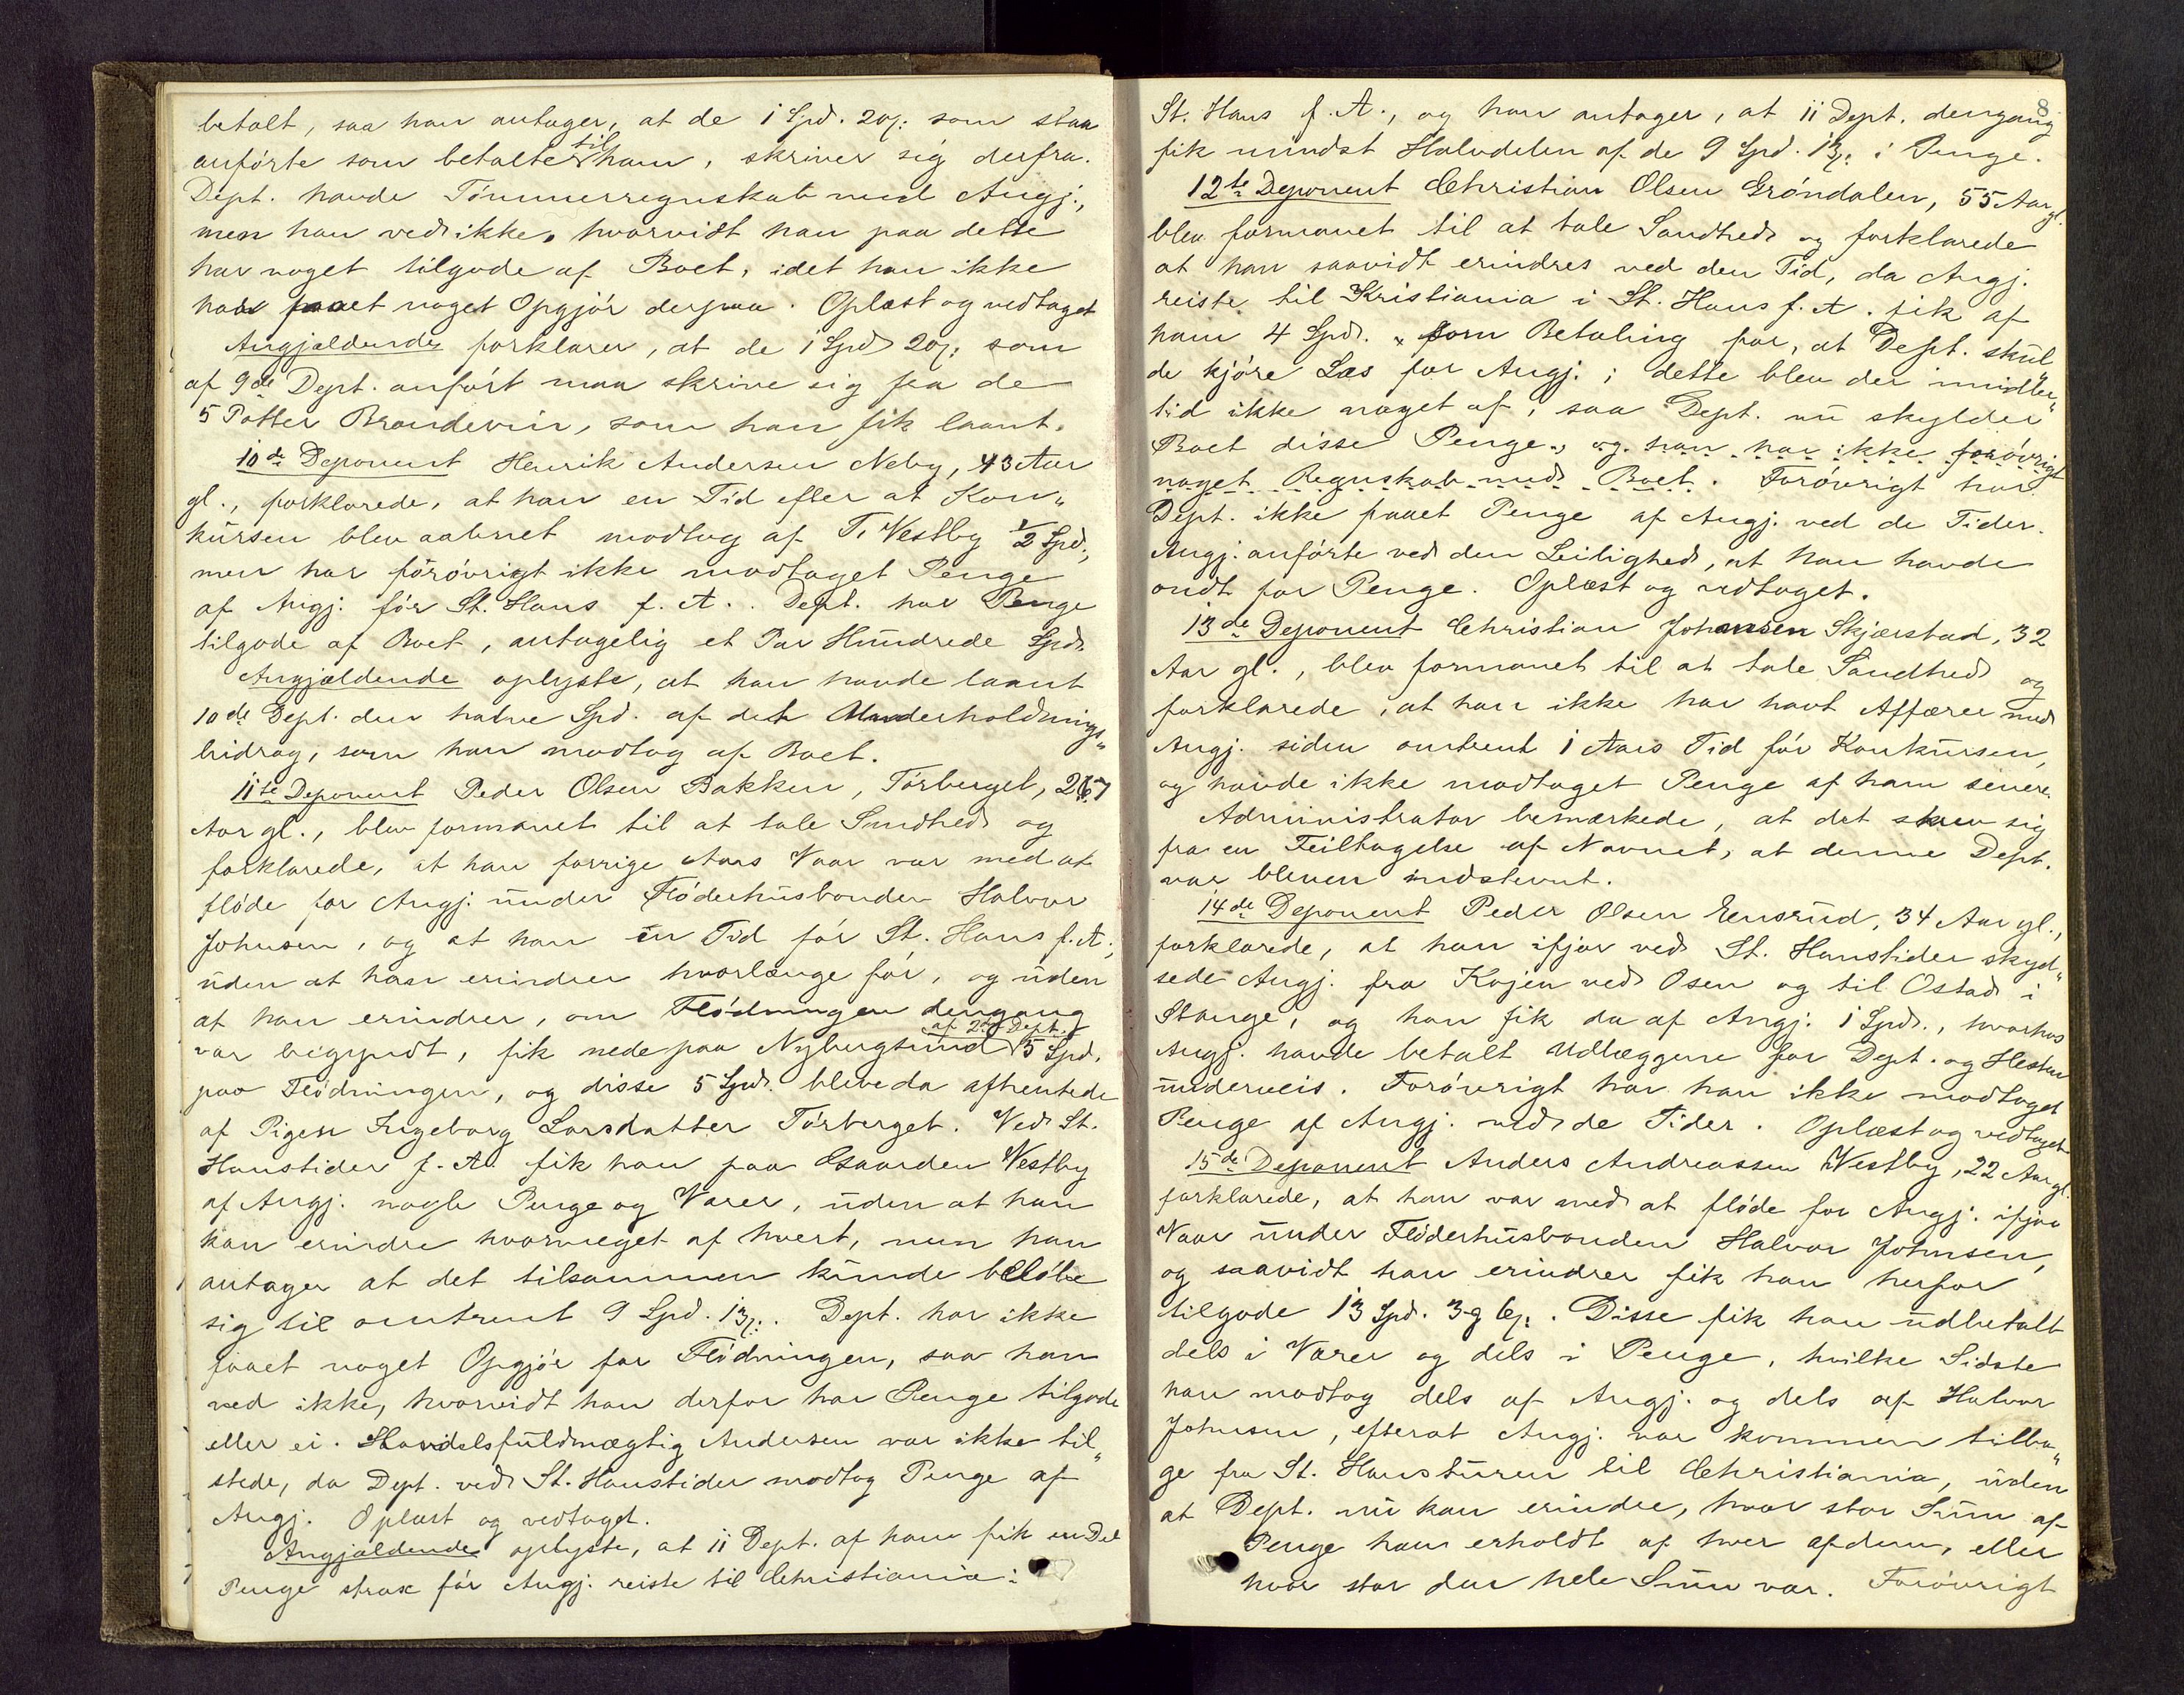 betalt, saa han antager, at de 1 Spd. 20ß: som staa
anførte som betalte til ham, skriver sig derfra.
Dept. havde Tømmerregnskab med Angj.,
men han ved ikke, hvorvidt han paa dette
har noget tilgode af Boet, idet han ikke
har faaet noget Opgjør derpaa. Oplæst og vedtaget
Angjældende forklarer, at de 1 Spd 20ß: som
af 9de Dept. anført maa skrive sig fra de
5 Potter Brændeviin, som han fik laant.
10de Deponent Henrik Andersen Neby, 43 Aar
gl., forklarede, at han en Tid efter at Kon„
kursen blev aabnet modtog af T. Vestby ½ Spd.,
men har forøvrigt ikke modtaget Penge
af Angj. før St. Hans f. A.. Dept. har Penge
tilgode af Boet, antagelig et Par Hundrede Spd.
Angjældende oplyste, at han havde laant
10de Dept. den halve Spd. af det Underholdnings„
bidrag, som han modtog af Boet.
11te Deponent Peder Olsen Bakken, Tørberget, 27
Aar gl., blev formanet til at tale Sandhed og
forklarede, at han forrige Aars Vaar var med at
fløde for Angj. under Fløderhusbonden Halvor
Johnsen, og at han en Tid før St. Hans f. A.,
uden at han erindrer hvorlænge før, og uden
at han erindrer, om Flødningen dengang
var begyndt, fik nede paa Nybergsund af 2d Dept. 5 Spd.
paa Flødningen, og disse 5 Spd. bleve da afhentede
af Pigen Ingeborg Larsdatter Tørberget. Ved St.
Hanstider f. A. fik han paa Gaarden Vestby
af Angj. nogle Penge og Varer, uden at han
kan erindre hvormeget af hvert, men han
antager at det tilsammen kunde beløbe
sig til omtrent 9 Spd. 13ß:. Dept. har ikke
faaet noget Opgjør for Flødningen, saa han
ved ikke, hvorvidt han derfor har Penge tilgode
eller ei. Handelsfuldmægtig Andersen var ikke til„
stede, da Dept. ved St. Hanstider modtog Penge af
Angj. Oplæst og vedtaget.
Angjældende oplyste, at 11 Dept. af ham fik en Del
Penge strax før Angj. reiste til Christiania:
8
St. Hans f. A., og han antager, at 11 Dept. dengang
fik mindst Halvdelen af de 9 Spd. 13ß: i Penge.
12te Deponent Christian Olsen Grøndalen, 55 Aar gl.
blev formanet til at tale Sandhed og forklarede
at han saavidt erindres ved den Tid, da Angj.
reiste til Kristiania i St. Hans f. A. fik af
ham 4 Spd. som Betaling for, at Dept. skul„
de kjøre Læs for Angj.; dette blev der imidler„
tid ikke noget af, saa Dept. nu skylder
Boet disse Penge, og han har ikke forøvrigt
noget Regnskab med Boet. Forøvrigt har
Dept. ikke faaet Penge af Angj. ved de Tider.
Angj. anførte ved den Leilighed, at han havde
ondt for Penge. Oplæst og vedtaget.
13de Deponent Christian Johansen Skjærstad, 32
Aar gl., blev formanet til at tale Sandhed og
forklarede, at han ikke har havt Affærer med
Angj. siden omtrent 1 Aars Tid før Konkursen,
og havde ikke modtaget Penge af ham senere.
Administrator bemærkede, at det skrev sig
fra en Feiltagelse af Navnet, at denne Dept.
var bleven indstevnt.
14de Deponent Peder Olsen Ensrud, 34 Aar gl.,
forklarede, at han ifjor ved St. Hanstider skyd„
sede Angj. fra Kojen ved Osen og til Ostad i
Stange, og han fik da af Angj. 1 Spd., hvorhos
Angj. havde betalt Udlæggene for Dept. og Hesten
underveis. Forøvrigt har han ikke modtaget
Penge af Angj. ved de Tider. Oplæst og vedtaget
15de Deponent Anders Andreassen Vestby, 22 Aar gl.
forklarede, at han var med at fløde for Angj. ifjor
Vaar under Fløderhusbonden Halvor Johnsen,
og saavidt han erindrer fik han herfor
tilgode 13 Spd. 3 ꝑ 6ß:. Disse fik han udbetalt
dels i Varer og dels i Penge, hvilke Sidste
han modtog dels af Angj. og dels af Halvor
Johnsen, efterat Angj. var kommen tilba„
ge fra St. Hansturen til Christiania, uden
at Dept. nu kan erindre, hvor stor Sum af
Penge han erholdt af hver af dem, eller
hvor stor den hele Sum var. Forøvrigt